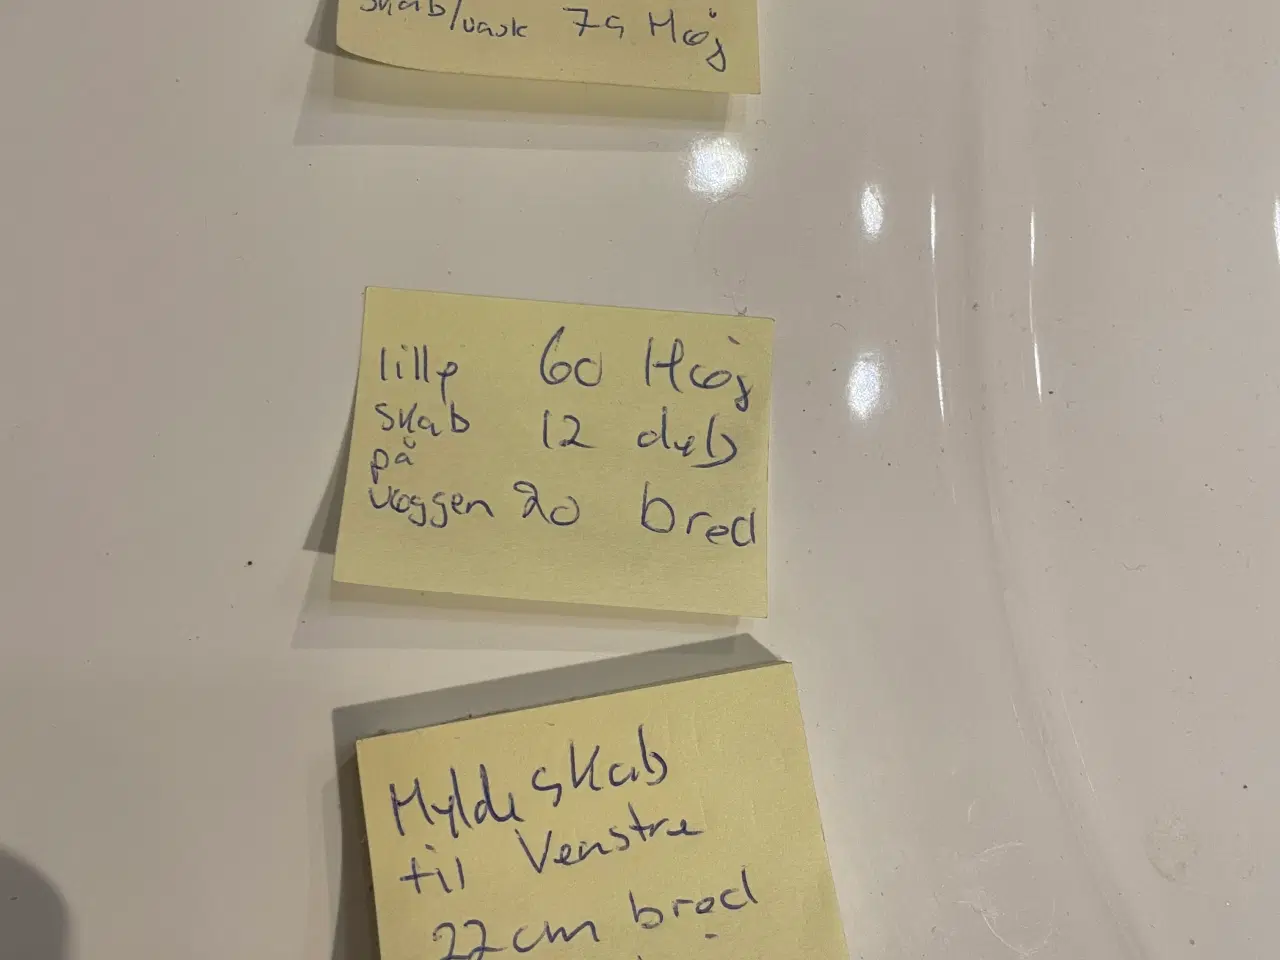 skab/vask 79 Høj
lille 60 Høj
skab 12 dyb
på
væggen 20 bred
Hyldeskab
til Venstre
22cm bred